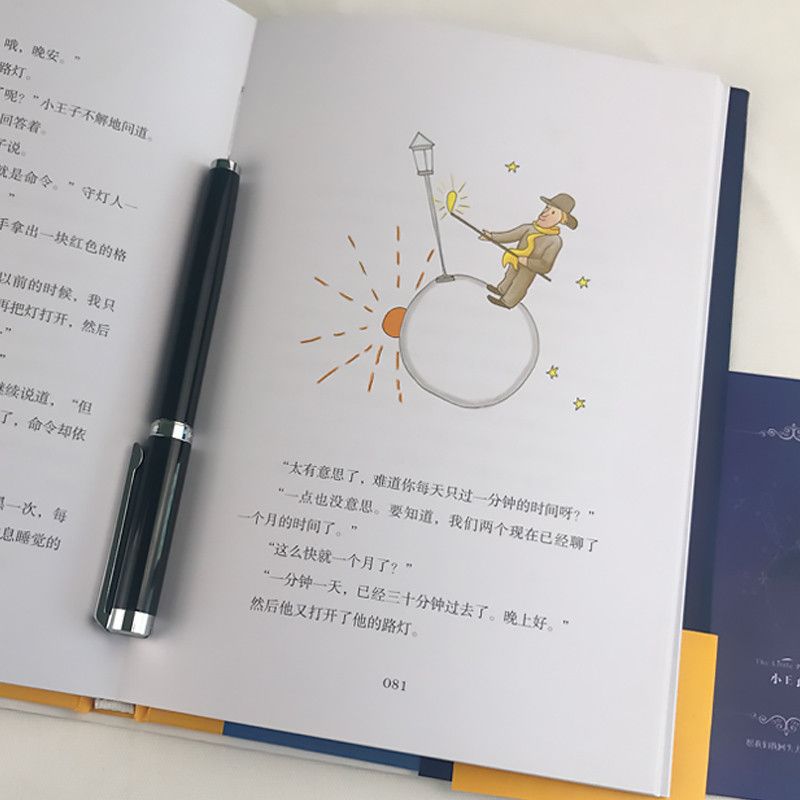 哦，晚安。”
路灯。
呢？”小王子不解地问道。
回答着。
子说。
就是命令。”守灯人一
”
手拿出一块红色的格
以前的时候，我只
再把灯打开，然后
”
”
继续说道，“但
了，命令却依
黑一次，每
息睡觉的
“太有意思了，难道你每天只过一分钟的时间呀？”
“一点也没意思。要知道，我们两个现在已经聊了
一个月的时间了。”
“这么快就一个月了？”
“一分钟一天，已经三十分钟过去了。晚上好。”
然后他又打开了他的路灯。
081
The Little
小王